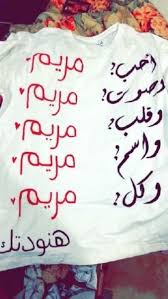 احب؟ مريم
وصوت؟ مريم
وقلب؟ مريم
واسم؟ مريم
وكل؟ مريم
هنودتك